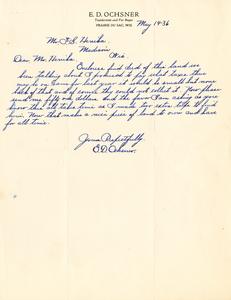 E. D. OCHSNER
Taxidermist and Fur Buyer
PRAIRIE DU SAC, WIS.
May 14-36
Mr. F.S.
Madison
Wis
Dear Mr.
Enclose find deed of this land we
been talking about I promised to pay what taxes there
may be on same for last year it should be small but none
told of that and of course they could not tell it. Now please
send me fifty one dollars and the favor I am asking as you
know this all take time as I made two extra trips to find
him. Now that makes a nice piece of land to own and have
for all time.
Yours Respectfully
E D Ochsner